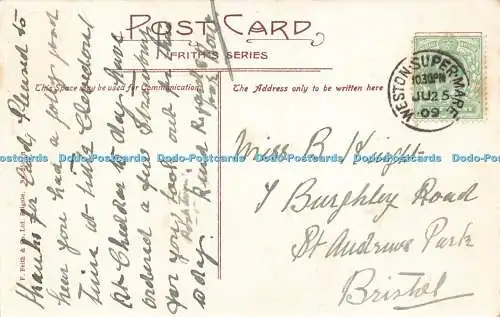 POST CARD
FRITH'S SERIES
This Space may be used for Communication.
The Address only to be written here
WESTON-SUPER-MARE
10.30PM
JU 25
09
Thanks for Card. Pleased to
hear you had a jolly good
time at Clevedon
At Cheddar to day have
ordered a few
for you look out
day. Kind Regards
Miss B. Knight
7 Burghley Road
St Andrews Park
Bristol
F. Frith & Co., Ltd. Reigate.
Dodo-Postcards Dodo-Postcards Dodo-Postcards Dodo-Postcards